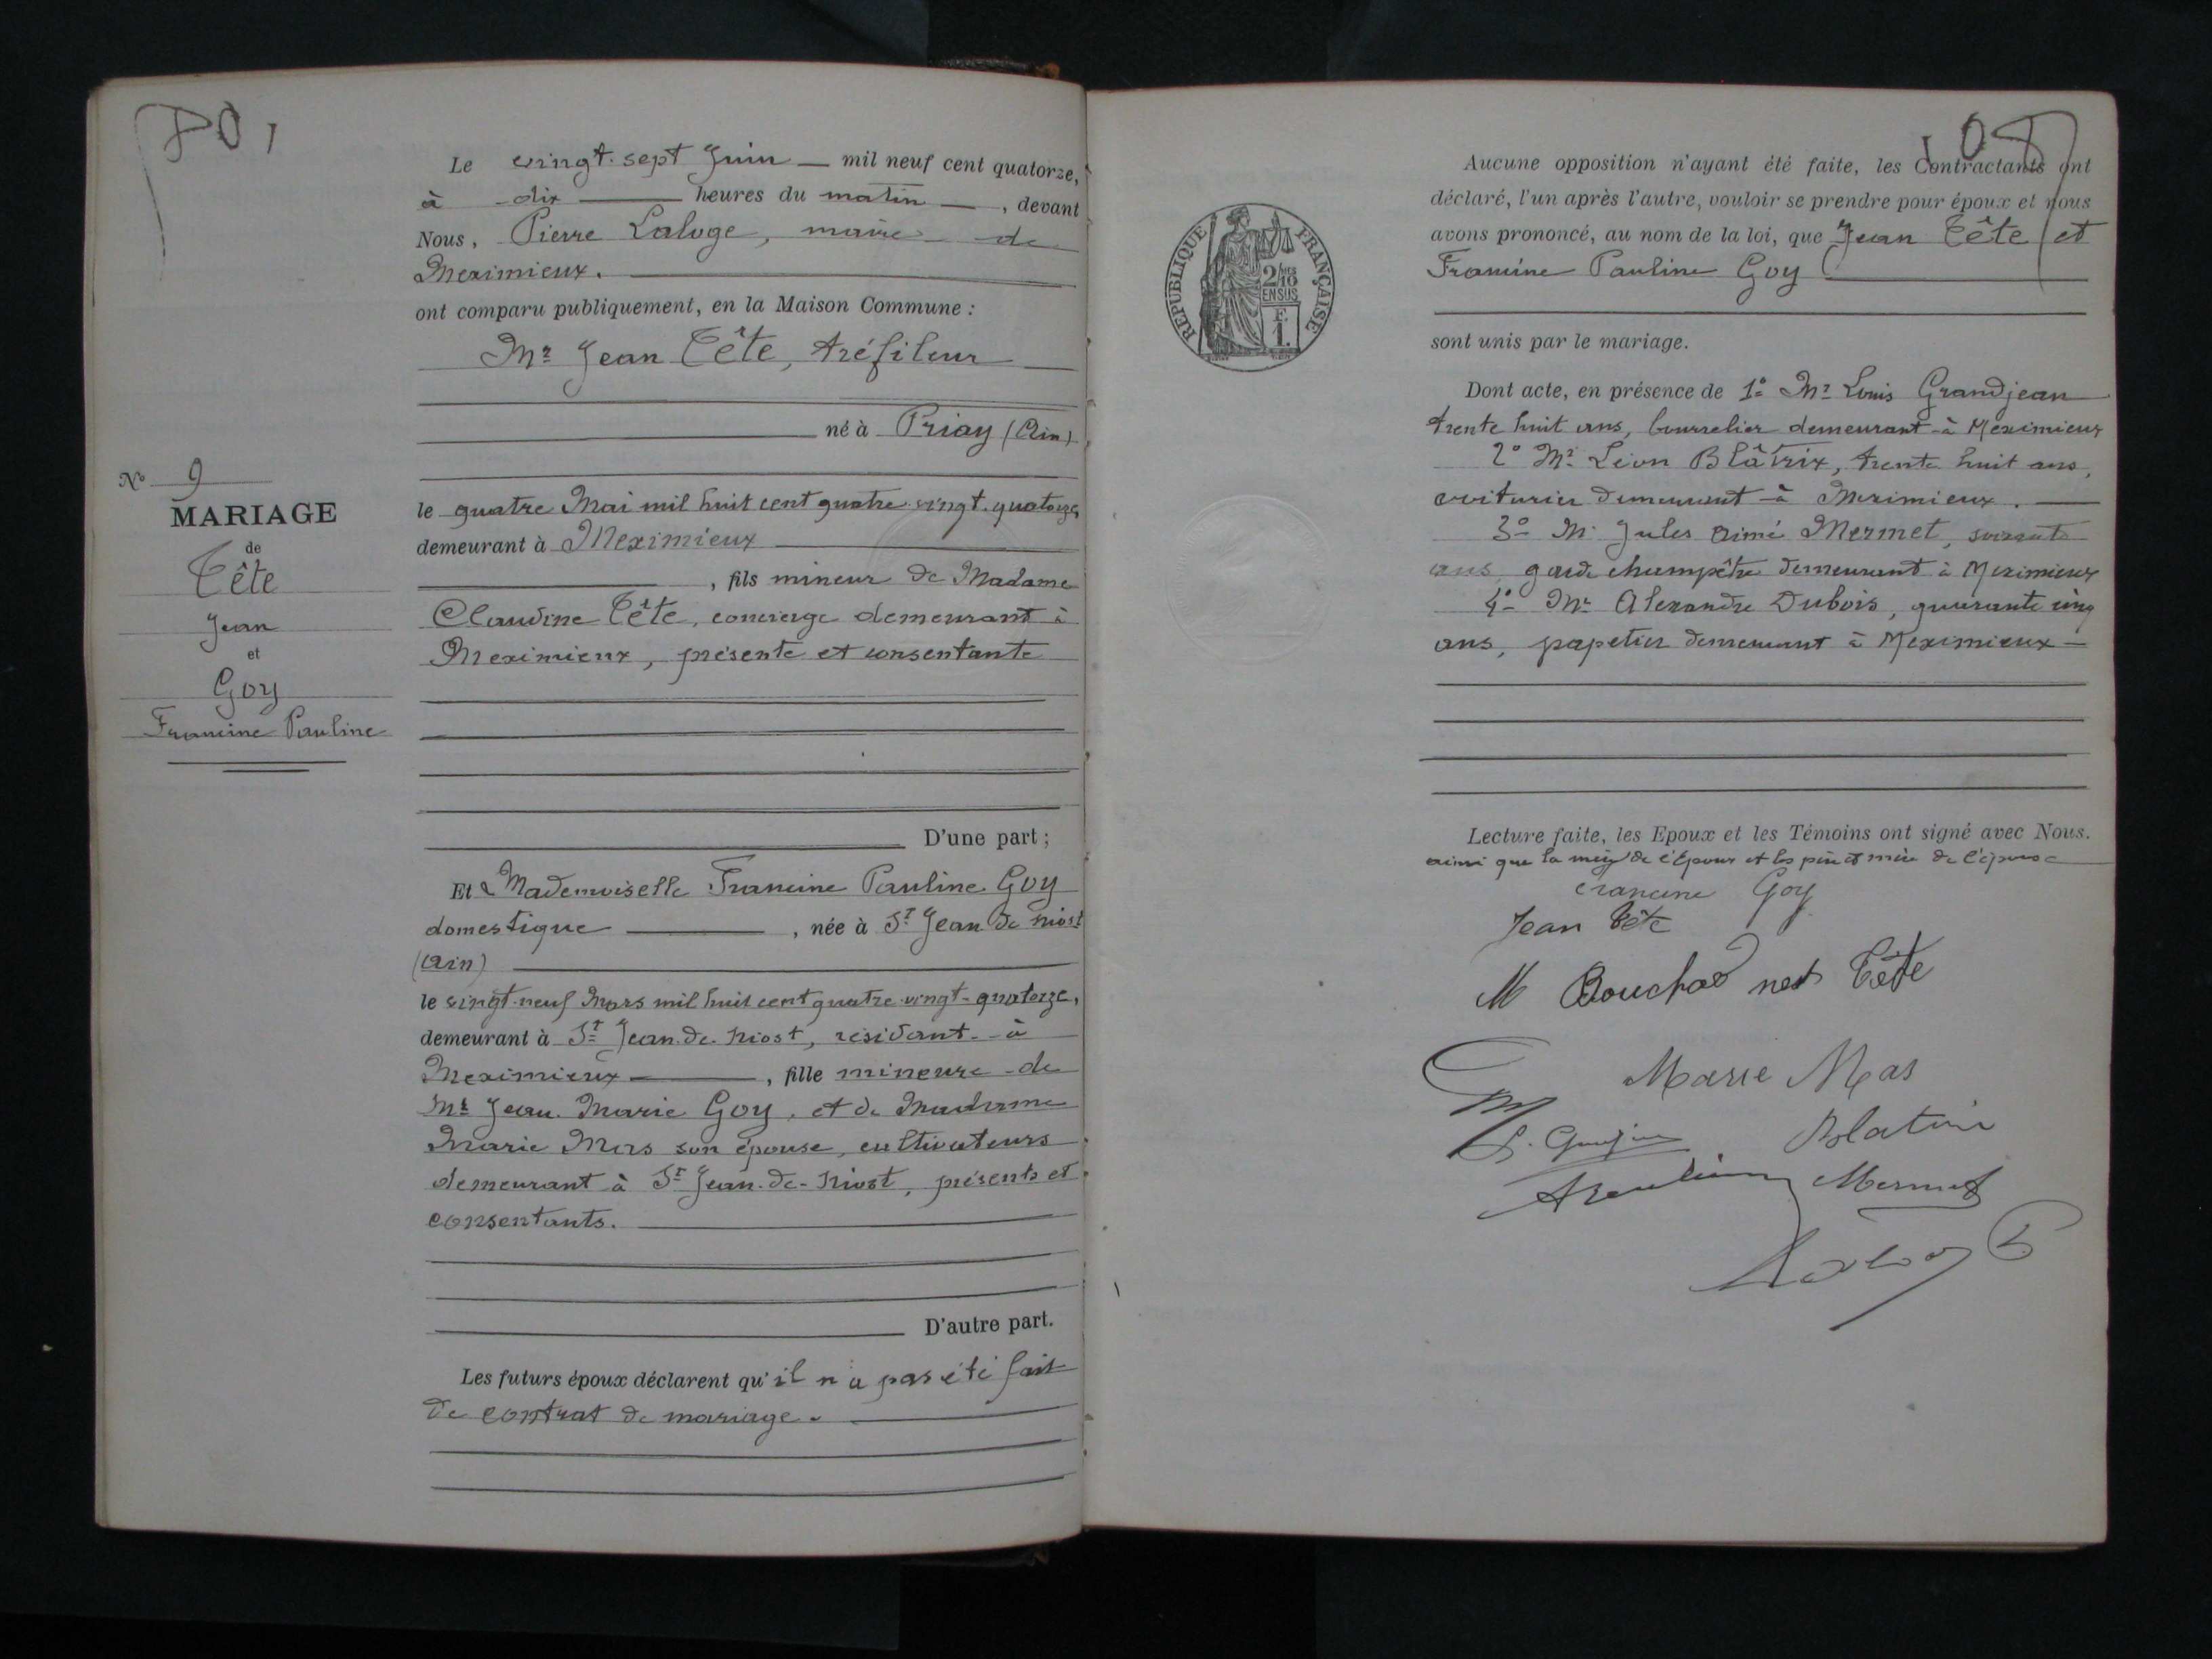 Le vingt-sept Juin — mil neuf cent quatorze,
à dix heures du matin, devant
Nous, Pierre Laloge, maire de
Meximieux.
ont comparu publiquement, en la Maison Commune :
Mr Jean Tête, tréfileur
né à Priay (Ain)
No 9
MARIAGE
de
Tête
Jean
et
Goy
Francine Pauline
le quatre Mai mil huit cent quatre-vingt-quatorze,
demeurant à Meximieux
, fils mineur de Madame
Claudine Tête, concierge demeurant à
Meximieux, présente et consentante
D'une part ;
Et Mademoiselle Francine Pauline Goy
domestique, née à St Jean de Niost
(Ain)
le vingt-neuf Mars mil huit cent quatre-vingt-quatorze,
demeurant à St Jean-de-Niost, résidant à
Meximieux, fille mineure de
Mr Jean-Marie Goy, et de Madame
Marie Mas son épouse, cultivateurs
demeurant à St Jean-de-Niost, présents et
consentants.
D'autre part.
Les futurs époux déclarent qu'il n'a pas été fait
de contrat de mariage.
108
Aucune opposition n'ayant été faite, les Contractants ont
déclaré, l'un après l'autre, vouloir se prendre pour époux et nous
avons prononcé, au nom de la loi, que Jean Tête et
Francine Pauline Goy
sont unis par le mariage.
RÉPUBLIQUE FRANÇAISE
Dont acte, en présence de 1° Mr Louis Grandjean
trente huit ans, bourrelier demeurant à Meximieux
2° Mr Léon Blâtrix, trente huit ans,
voiturier demeurant à Meximieux.
3° Mr Jules Aimé Mermet, soixante
ans, garde champêtre demeurant à Meximieux
4° Mr Alexandre Dubois, quarante cinq
ans, papetier demeurant à Meximieux
Lecture faite, les Epoux et les Témoins ont signé avec Nous.
ainsi que la mère de l'époux et les père et mère de l'épouse
Francine Goy
Jean Tête
M Bouchad Tête
Marie Mas
Mermet